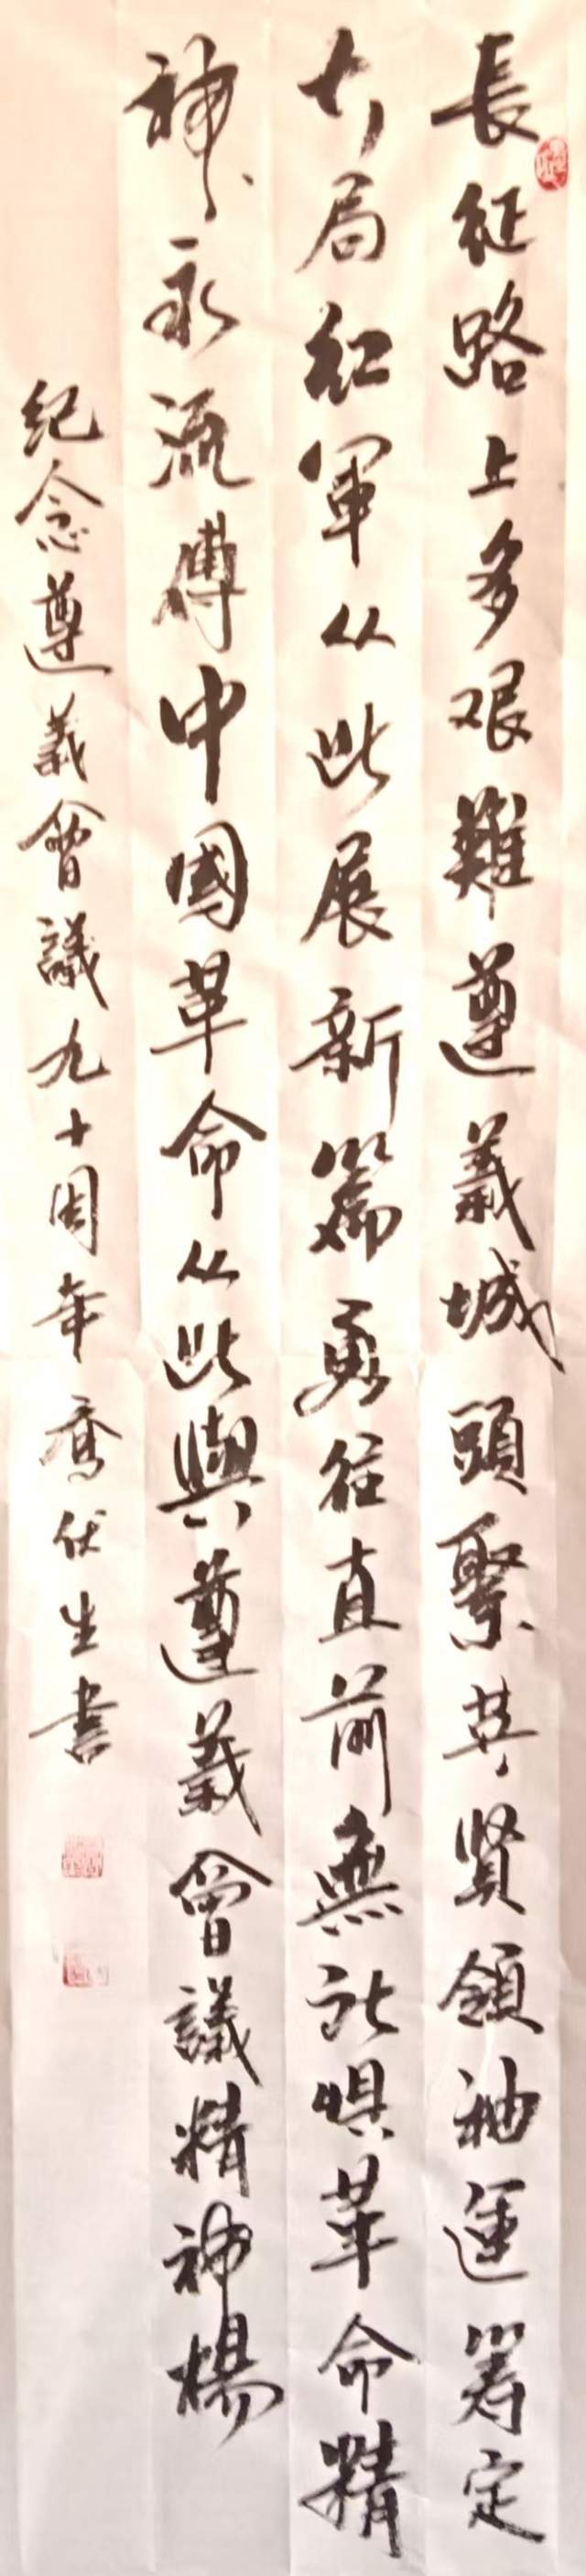 長征路上多艰難遵義城頭聚英賢領袖運筹定
大局红軍从此展新篇勇往直前無所惧革命精
神永流傳中國革命从此興遵義會議精神楊
紀念遵義會議九十周年喬伏生書